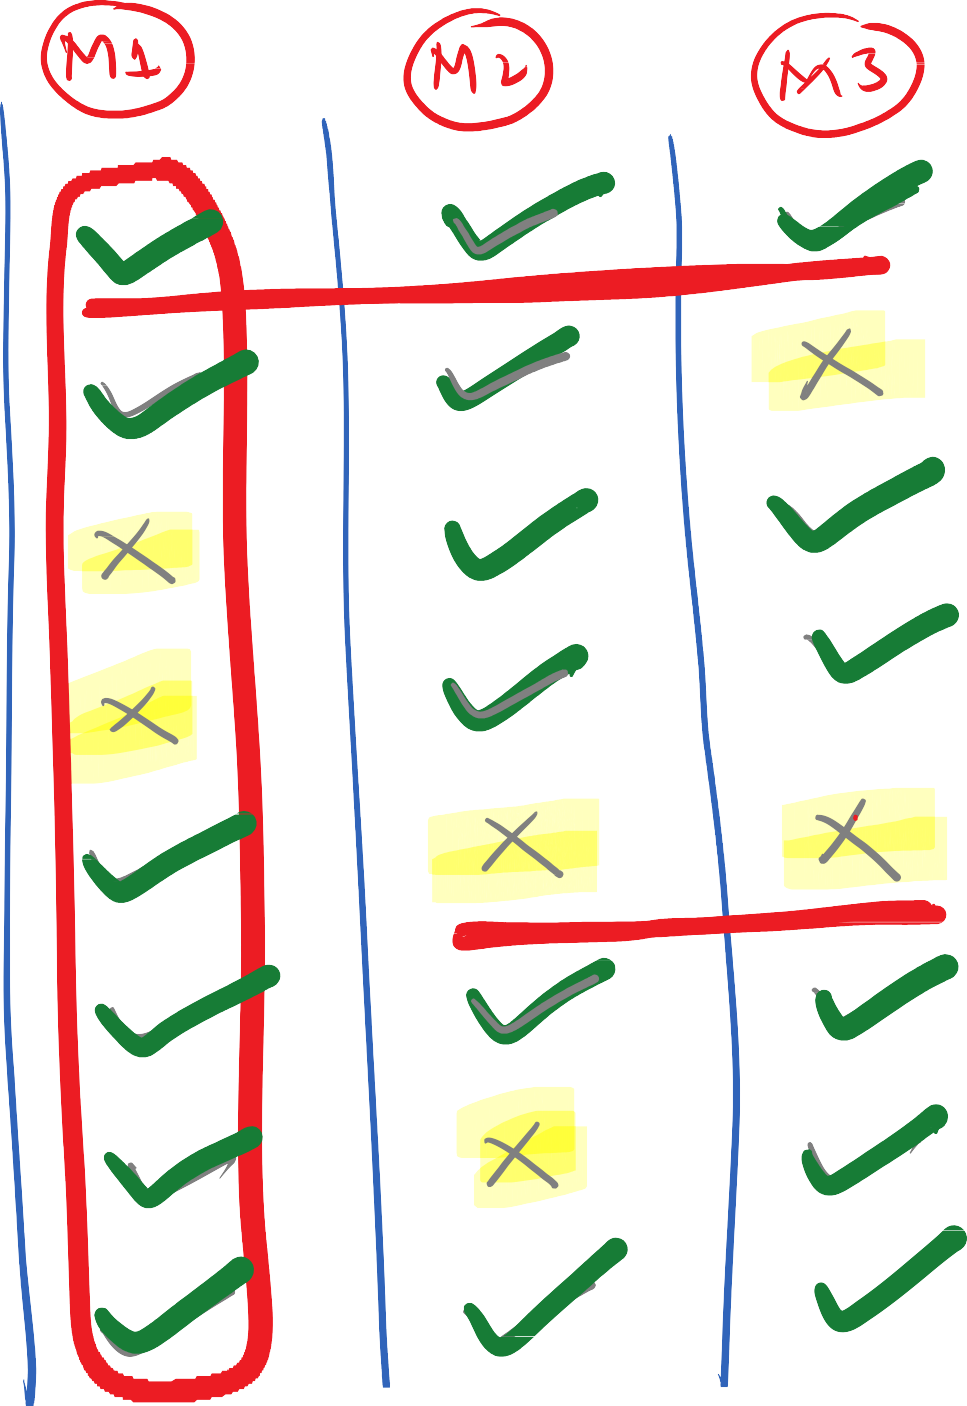 M1 M2 M3